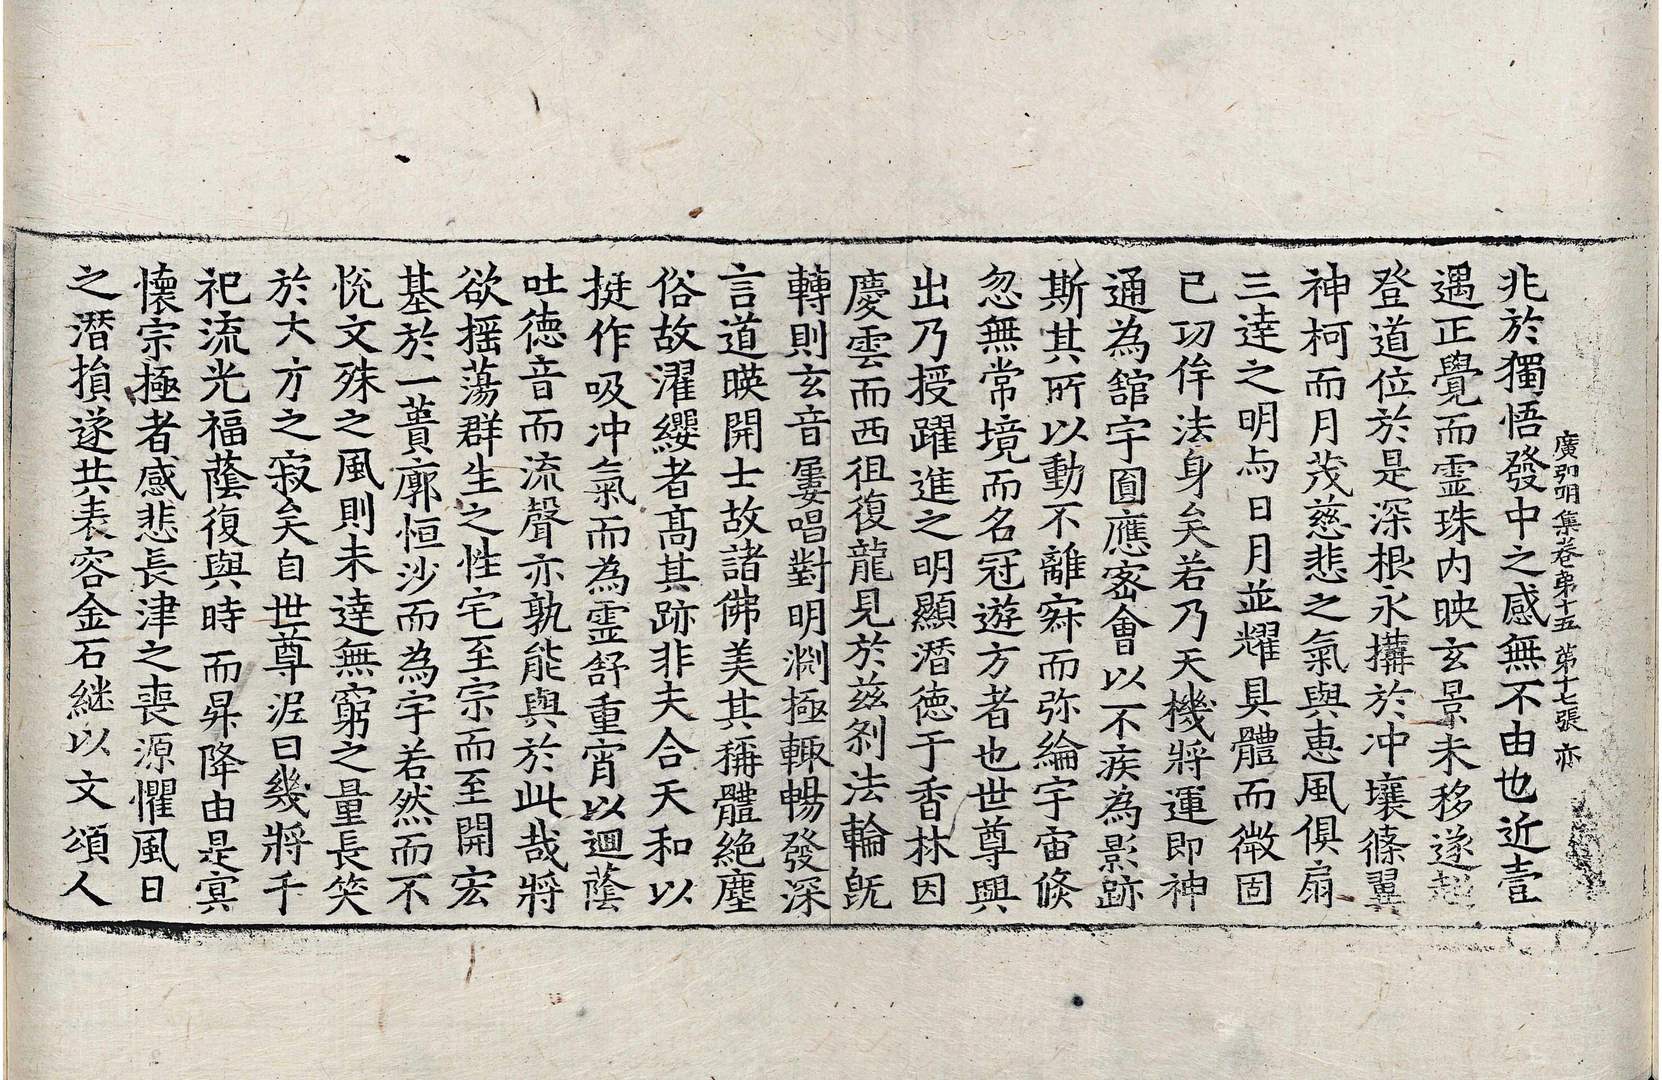 廣弘明集卷苐十五 第十七張 亦
兆於獨悟發中之感無不由也近壹
遇正覺而霊珠内映玄景未移遂超
登道位於是深根永搆於冲壤條翼
神柯而月茂慈悲之氣與恵風俱扇
三逹之明与日月並耀具體而微固
已功侔法身矣若乃天機將運即神
通為舘宇圎應宻會以不疾為影跡
斯其所以動不離寂而弥綸宇宙倏
忽無常境而名冠遊方者也世尊興
出乃授躍進之明顯潛徳于香林因
慶雲而西徂復龍見於兹刹法輪旣
轉則玄音屢唱對明淵極輙暢發深
言道暎開士故諸佛美其稱體絶塵
俗故濯纓者髙其跡非夫合天和以
挺作吸冲氣而為霊舒重宵以廻蔭
吐徳音而流聲亦孰能與於此哉將
欲揺蕩群生之性宅至宗而至開宏
基於一蕢廓恒沙而為宇若然而不
恱文殊之風則未逹無窮之量長笑
於大方之寂矣自世尊泥曰幾將千
祀流光福蔭復與時而昇降由是㝠
懷宗極者感悲長津之喪源懼風日
之潛損遂共表容金石継以文頌人